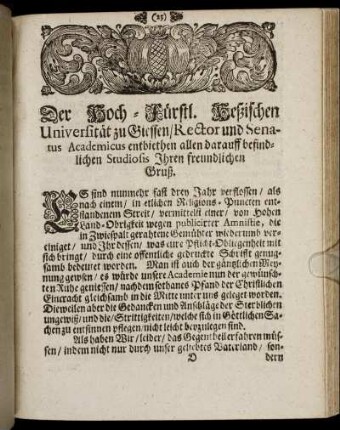 (25)
Der Hoch-Fürstl. Heßischen
Universität zu Giessen/ Rector und Sena-
tus Academicus entbiethen allen darauff befind-
lichen Studiosis Ihren freundlichen
Gruß.
ES sind nunmehr fast drey Jahr verflossen/ als
nach einem/ in etlichen Religions-Puncten ent-
standenem Streit/ vermittelst einer/ von Hohen
Land-Obrigkeit wegen publicirter Amnistie, die
in Zwiespalt gerahtene Gemühter wiederumb ver-
einiget/ und Ihr dessen/ was eure Pflicht-Obliegenheit mit
sich bringt/ durch eine offentliche gedruckte Schrifft genug-
samb bedeutet worden. Man ist auch der gäntzlichen Mey-
nung gewesen/ es würde unsere Academie nun der gewünsch-
ten Ruhe geniessen/ nachdem sothanes Pfand der Christlichen
Einträcht gleichsamb in die Mitte unter uns geleget worden.
Dieweilen aber die Gedancken und Anschläge der Sterblichen
ungewiß/ und die/ Strittigkeiten/ welche sich in Göttlichen Sa-
chen zu entspinnen pflegen/ nicht leicht beyzulegen sind.
Als haben Wir/ leider/ das Gegentheil erfahren müs-
sen/ indem nicht nur durch unser geliebtes Vaterland/ son-
D dern